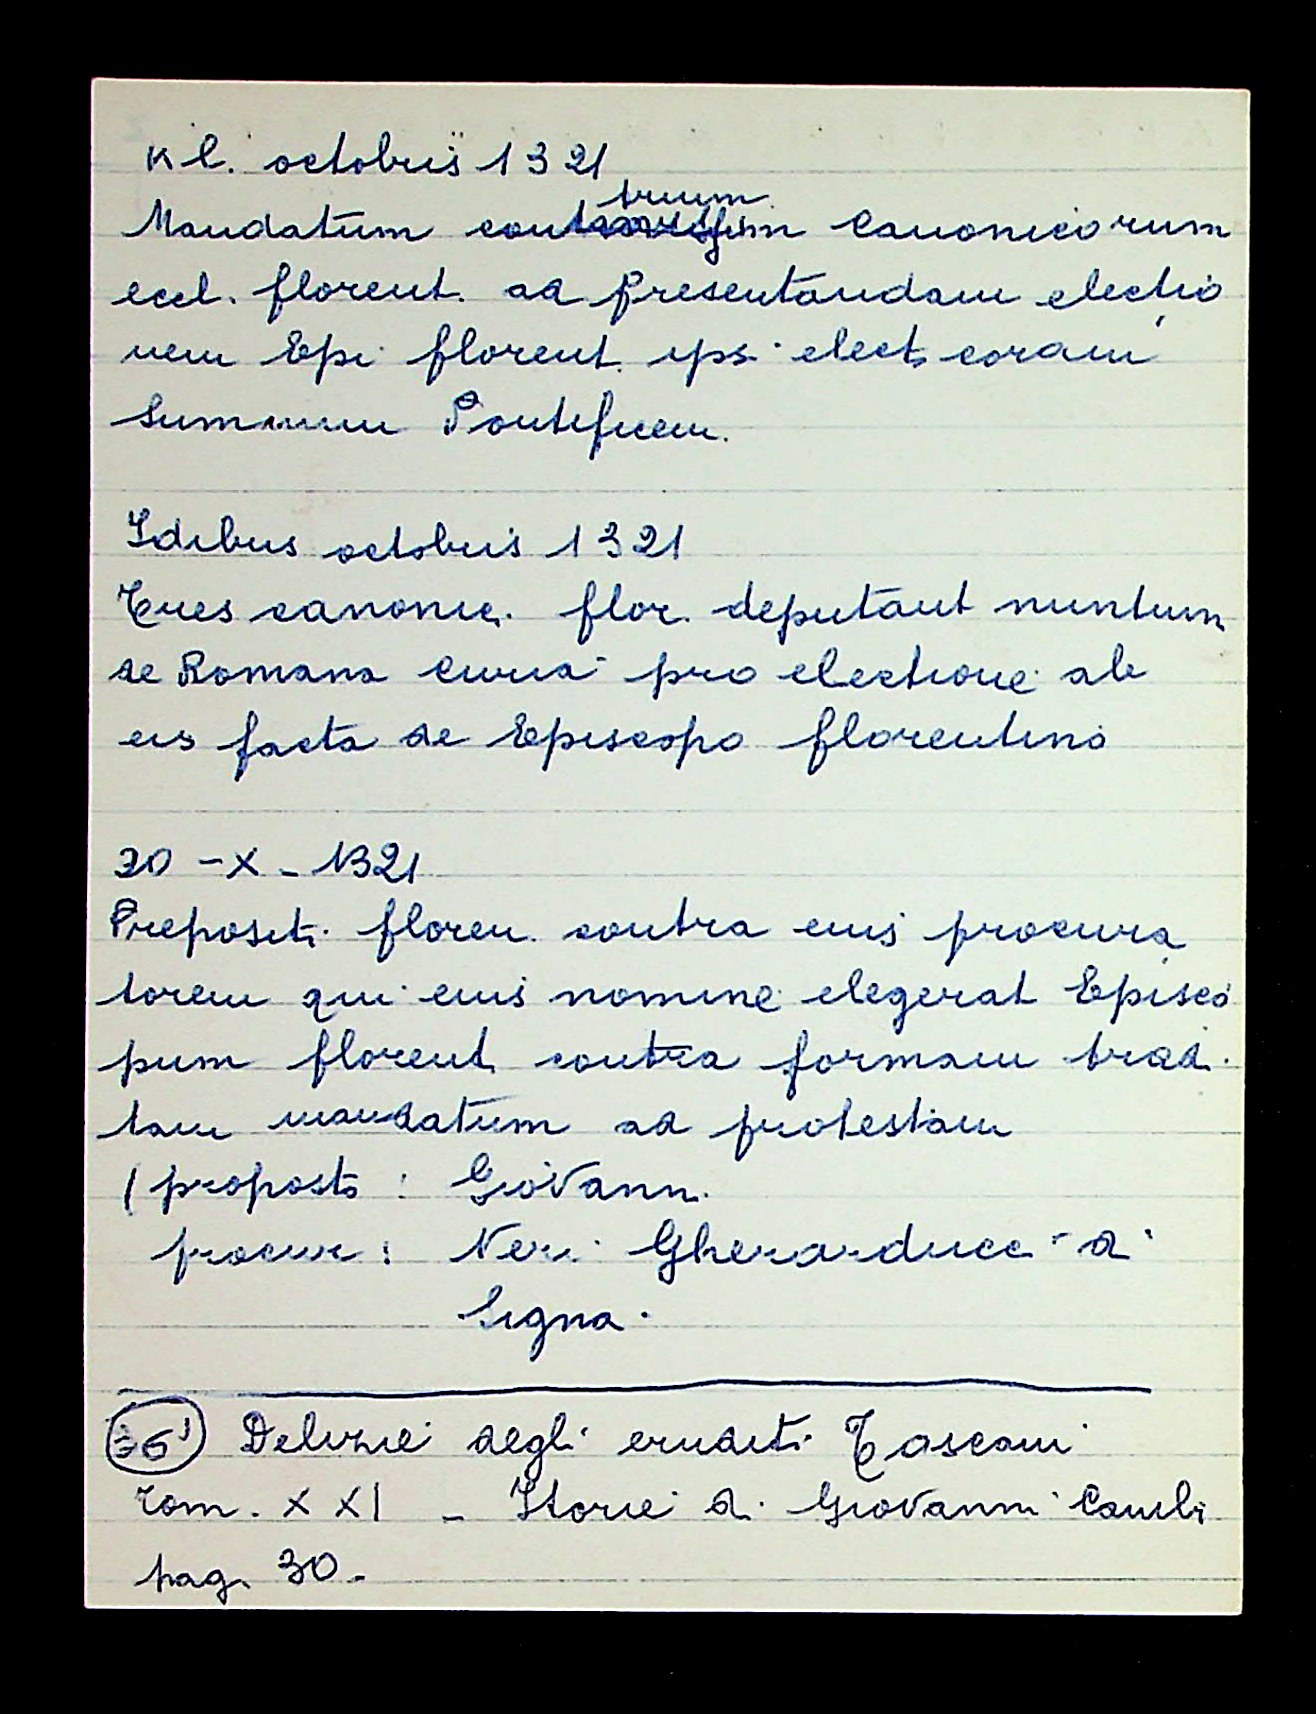 Kl. octobris 1321
trium
Mandatum canonicorum
eccl. florent. ad presentandam electio
nem Epi florent. ips. elect. coram
Summum Pontificem.
Idibus octobris 1321
Tres canonic. flor. deputant nuntium
de Romana curia pro electione ab
eis facta de Episcopo florentino
30-X-1321
Preposit. floren. contra eius procura
torem qui eius nomine elegerat Episco
pum florent. contra formam trad.
tam mandatum ad protestam
(proposto: Giovanni
procur: Neri Gherarducci di
Signa.
36) Delizie degli eruditi Toscani
Tom. XXI - Istorie di Giovanni Cambi
pag. 30.